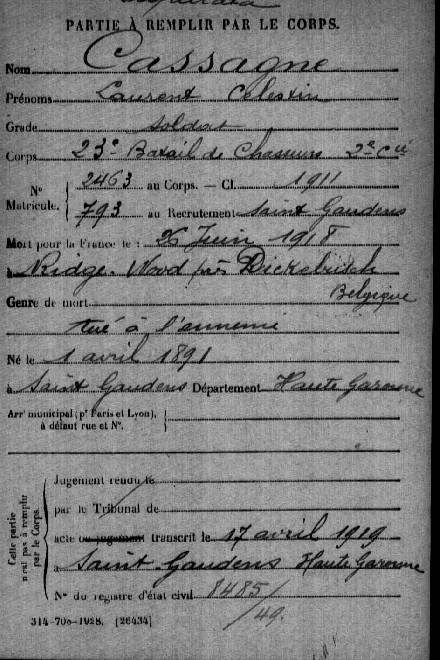 PARTIE À REMPLIR PAR LE CORPS.
Nom Cassagne
Prénoms Laurent Celestin
Grade soldat
Corps 23e Batail de Chasseurs 2e Cie
N° Matricule. 2463 au Corps. — Cl. 1911
793 au Recrutement Saint Gaudens
Mort pour la France le : 26 Juin 1918
à Ridge-Wood près Dickebusch
Belgique
Genre de mort
tué à l'ennemi
Né le 1 avril 1891
à Saint Gaudens Département Haute Garonne
Arrt municipal (pr Paris et Lyon),
à défaut rue et N°.
Cette partie
n'est pas à remplir
par le Corps.
Jugement rendu le
par le Tribunal de
acte ou jugement transcrit le 17 avril 1919
à Saint Gaudens Haute Garonne
N° du registre d'état civil 8485/
/49.
314-708-1928. [26434]